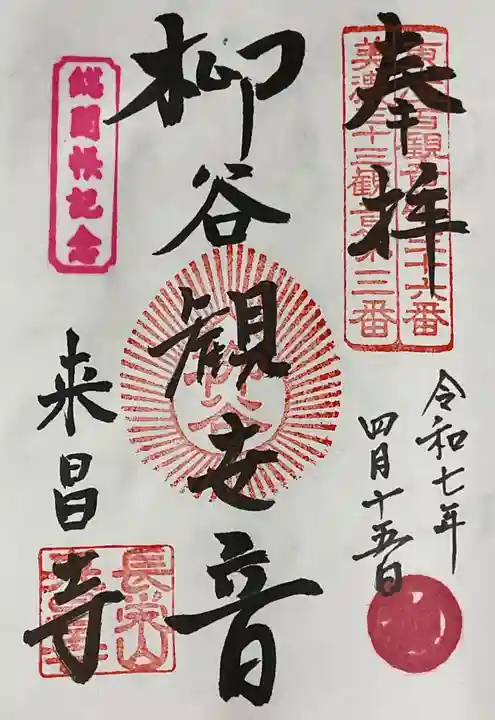 奉拝
東海百観音第三十六番
美濃三十三観音第三番
令和七年
四月十五日
柳谷観世音
総開帳記念
来昌寺